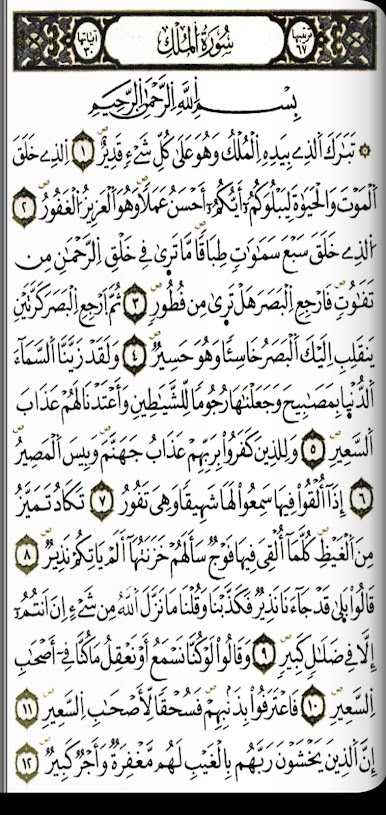 ترتيبها ٦٧ سُورَةُ المُلْكِ آياتها ٣٠
بِسْمِ اللَّهِ الرَّحْمَٰنِ الرَّحِيمِ
تَبَٰرَكَ اَلذِے بِيَدِهِ اِلْمُلْكُ وَهُوَ عَلَىٰ كُلِّ شَےْءٖ قَدِيرٌ ١ اِلذِے خَلَقَ
اَلْمَوْتَ وَالْحَيَوٰةَ لِيَبْلُوَكُمُۥٓ أَيُّكُمُۥٓ أَحْسَنُ عَمَلاٗ وَهُوَ اَلْعَزِيزُ اُلْغَفُورُ ٢
اُلذِے خَلَقَ سَبْعَ سَمَٰوَٰتٖ طِبَاقاٗ مَّا تَرۭىٰ فِے خَلْقِ اِلرَّحْمَٰنِ مِن
تَفَٰوُتٖ فَارْجِعِ اِلْبَصَرَ هَلْ تَرۭىٰ مِن فُطُورٖ ٣ ثُمَّ اَرْجِعِ اِلْبَصَرَ كَرَّتَيْنِ
يَنقَلِبِ اِلَيْكَ اَلْبَصَرُ خَاسِئاٗ وَهُوَ حَسِيرٌ ٤ وَلَقَدْ زَيَّنَّا اَلسَّمَآءَ
اَلدُّنْيۭا بِمَصَٰبِيحَ وَجَعَلْنَٰهَا رُجُوماٗ لِّلشَّيَٰطِينِ وَأَعْتَدْنَا لَهُمْ عَذَابَ
اَلسَّعِيرِ ٥ وَلِلذِينَ كَفَرُواْ بِرَبِّهِمْ عَذَابُ جَهَنَّمَ وَبِيسَ اَلْمَصِيرُ
٦ إِذَآ أُلْقُواْ فِيهَا سَمِعُواْ لَهَا شَهِيقاٗ وَهِيَ تَفُورُ ٧ تَكَادُ تَمَيَّزُ
مِنَ اَلْغَيْظِ كُلَّمَآ أُلْقِيَ فِيهَا فَوْجٞ سَأَلَهُمْ خَزَنَتُهَآ أَلَمْ يَاتِكُمْ نَذِيرٞ ٨
قَالُواْ بَلَىٰ قَدْ جَآءَنَا نَذِيرٞ فَكَذَّبْنَا وَقُلْنَا مَا نَزَّلَ اَللَّهُ مِن شَےْءٍ اِنَ اَنتُمُۥٓ
إِلَّا فِے ضَلَٰلٖ كَبِيرٖ ٩ وَقَالُواْ لَوْ كُنَّا نَسْمَعُ أَوْ نَعْقِلُ مَا كُنَّا فِےٓ أَصْحَٰبِ
اِلسَّعِيرِ ١٠ فَاعْتَرَفُواْ بِذَنۢبِهِمْ فَسُحْقاٗ لِّأَصْحَٰبِ اِلسَّعِيرِ ١١
إِنَّ اَلذِينَ يَخْشَوْنَ رَبَّهُم بِالْغَيْبِ لَهُم مَّغْفِرَةٞ وَأَجْرٞ كَبِيرٞ ١٢